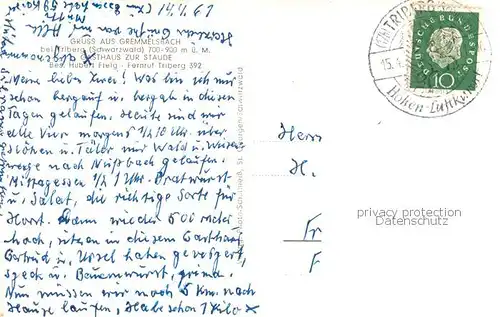 14.4.61
GRUSS AUS GREMMELSBACH
bei Triberg (Schwarzwald) 700-920 m ü. M.
GASTHAUS ZUR STAUDE
Bes. Hubert Fleig - Fernruf Triberg 392
Meine lieben Zwei! Was bin ich nur
schon bergauf u. bergab in diesen
Tagen gelaufen. Heute sind wir
alle Vier morgens ½10 Uhr über
Höhen u. Täler nur Wald u. Wiesen-
wege nach Nußbach gelaufen.
Mittagessen ½1 Uhr. Bratwurst
u. Salat, die richtige Sorte für
Horst. Dann wieder 500 m
hoch, sitzen in diesem Gasthaus
Gertrud u. Ursel haben gevespert,
Speck u. Bauernwurst, prima.
Nun müssen wir noch 5 Km. nach
Hause laufen, Habe schon 1 Kilo
TRIBERG
15.4.
Höhen-Luftkurort
DEUTSCHE BUNDESPOST
10
Herrn
H.
Fr
F
privacy protection
Datenschutz